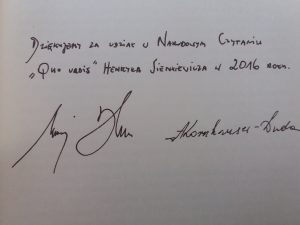 Dziękujemy za udział w Narodowym Czytaniu
"Quo vadis" Henryka Sienkiewicza w 2016 roku.
AKornhauser-Duda